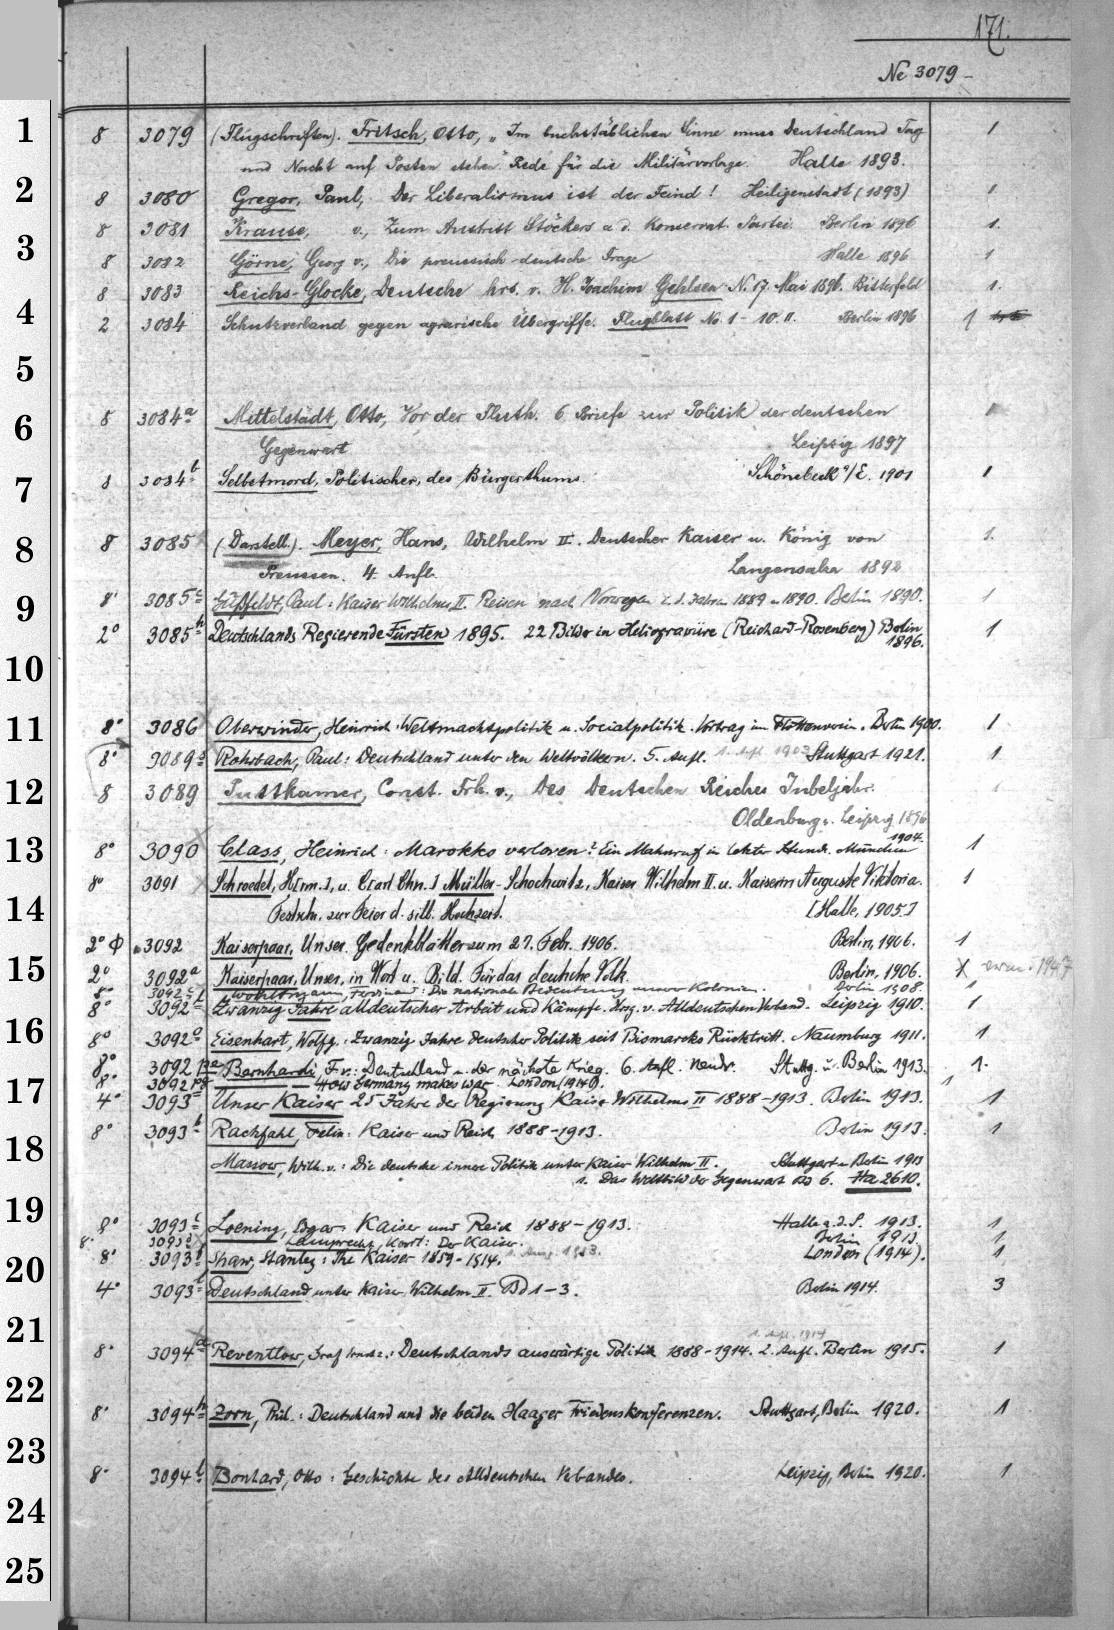 171.
№ 3079 –
1
8 3079 (Flugschriften). Fritsch, Otto, „Im buchstäblichen Sinne muss Deutschland Tag 1
und Nacht auf Posten stehen" Rede für die Militärvorlage. Halle 1893.
2
8 3080 Gregor, Paul, Der Liberalismus ist der Feind! Heiligenstadt (1893) 1
8 3081 Krause, v., Zum Austritt Stöckers a. d. Konservat. Partei. Berlin 1896 1.
3
8 3082 Görne, Georg v., Die preussisch-deutsche Frage Halle 1896 1
8 3083 Reichs-Glocke, Deutsche hrs. v. H. Joachim Gehlsen N. 17 Mai 1896. Bitterfeld 1.
4
2 3084 Schutzverband gegen agrarische Übergriffe. Flugblatt No. 1 - 10. 11. Berlin 1896 1
5
8 3084a Mittelstädt, Otto, Vor der Fluth. 6 Briefe zur Politik der deutschen 1
6
Gegenwart Leipzig 1897
7
8 3084b Selbstmord, Politischer, des Bürgerthums. Schönebeck a/E. 1901 1
8
8 3085 (Darstell.). Meyer, Hans, Wilhelm II. Deutscher Kaiser u. König von 1.
Preussen. 4. Aufl. Langensalza 1892
9
8° 3085c Güßfeldt, Paul: Kaiser Wilhelms II. Reisen nach Norwegen i. d. Jahren 1889 u. 1890. Berlin 1890. 1
2° 3085h Deutschlands Regierende Fürsten 1895. 22 Bilder in Heliogravüre (Reichard-Rosenberg) Berlin 1
1896.
10
11
8° 3086 Oberwinder, Heinrich: Weltmachtspolitik u. Socialpolitik. Vortrag im Flottenverein. Berlin 1900. 1
8° 3089a Rohrbach, Paul: Deutschland unter den Weltvölkern. 5. Aufl. 1. Aufl. 1903 Stuttgart 1921. 1
12
8 3089 Puttkamer, Const. Frh. v., Des Deutschen Reiches Jubeljahr.
Oldenburg u. Leipzig 1896
13
8° 3090 Class, Heinrich: Marokko verloren? Ein Mahnruf in letzter Stunde. München 1904. 1
8° 3091 Schroedel, H[rm.], u. C[arl Chn.] Müller-Schochwitz, Kaiser Wilhelm II. u. Kaiserin Auguste Viktoria. 1
14
Festschr. zur Feier d. silb. Hochzeit. [Halle, 1905.]
2° Φ 3092 Kaiserpaar, Unser. Gedenkblätter zum 27. Febr. 1906. Berlin, 1906. 1
15
2° 3092a Kaiserpaar, Unser, in Wort u. Bild. Für das deutsche Volk. Berlin, 1906. X 1947
8° 3092c Wohltmann, Ferdinand: Die nationale Bedeutung unserer Kolonien. Berlin 1908. 1
8° 3092 Zwanzig Jahre alldeutscher Arbeit und Kämpfe. Hrsg. v. Alldeutschen Verband. Leipzig 1910. 1
16
8° 3092o Eisenhart, Wolfg.: Zwanzig Jahre deutscher Politik seit Bismarcks Rücktritt. Naumburg 1911. 1
8° 3092 pa Bernhardi, F. v.: Deutschland u. der nächste Krieg. 6. Aufl. Neudr. Stuttg. u. Berlin 1913. 1.
17
8° 3092 — How Germany makes war. London (1914). 1
4° 3093 Unser Kaiser 25 Jahre der Regierung Kaiser Wilhelms II 1888-1913. Berlin 1913. 1
8° 3093b Rachfahl, Felix: Kaiser und Reich 1888-1913. Berlin 1913. 1
18
Massow, Wilh. v.: Die deutsche innere Politik unter Kaiser Wilhelm II. Stuttgart u. Berlin 1913
s. Das Weltbild der Gegenwart Bd 6. Ha 2610.
19
8° 3093c Loening, Edgar: Kaiser und Reich 1888-1913. Halle a. d. S. 1913. 1
8° 3093 Lamprecht, Karl: Der Kaiser. Berlin 1913. 1
8° 3093 Shaw, Stanley: The Kaiser 1859-1914. 1. Ausg. 1913. London (1914). 1
20
4° 3093l Deutschland unter Kaiser Wilhelm II. Bd 1-3. Berlin 1914. 3
21
1. Aufl. 1914
8° 3094a Reventlow, Graf Ernst z.: Deutschlands auswärtige Politik 1888-1914. 2. Aufl. Berlin 1915. 1
22
8° 3094h Zorn, Phil.: Deutschland und die beiden Haager Friedenskonferenzen. Stuttgart, Berlin 1920. 1
23
8° 3094l Bonhard, Otto: Geschichte des Alldeutschen Verbandes. Leipzig, Berlin 1920. 1
24
25